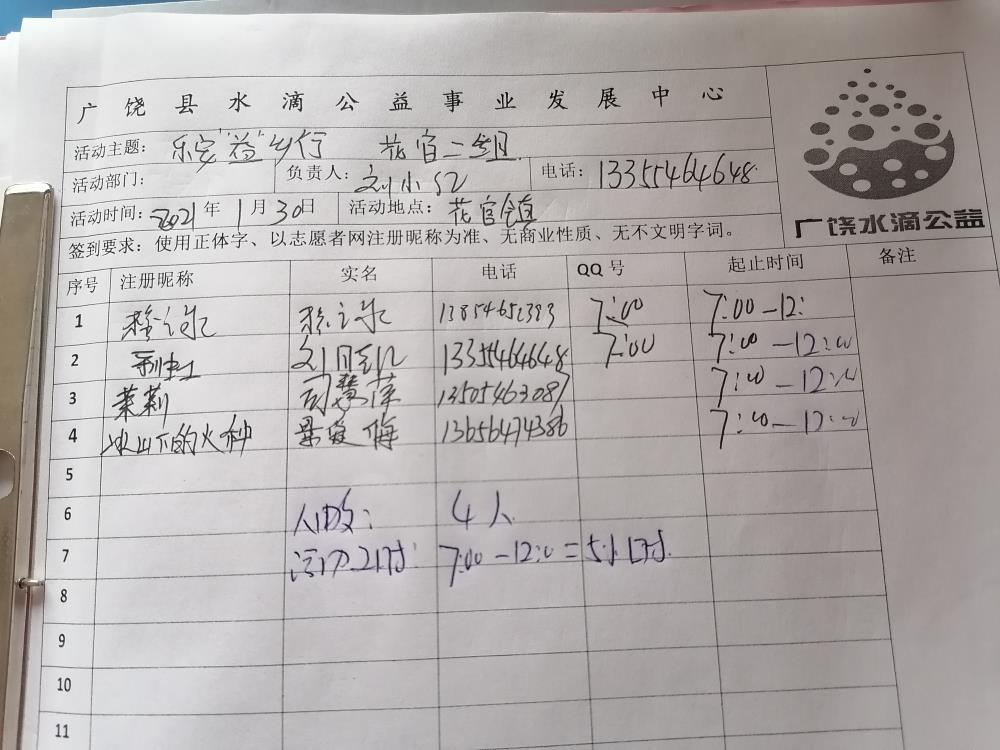 广饶县水滴公益事业发展中心
活动主题：乐安"益"乡行 花官二组
活动部门： 负责人：刘小红 电话：13355464648
活动时间：2021年1月30日 活动地点：花官镇
广饶水滴公益
签到要求：使用正体字、以志愿者网注册昵称为准、无商业性质、无不文明字词。
序号 注册昵称 实名 电话 QQ号 起止时间 备注
1 7:00 7:00-12:
2 13355464648 7:00 7:00-12:00
3 茉莉 13505463087 7:00-12:00
4 冰山下的火种 13656474386 7:00-12:00
5
6 人数： 4人
7 活动工时： 7:00-12:0=5小时
8
9
10
11